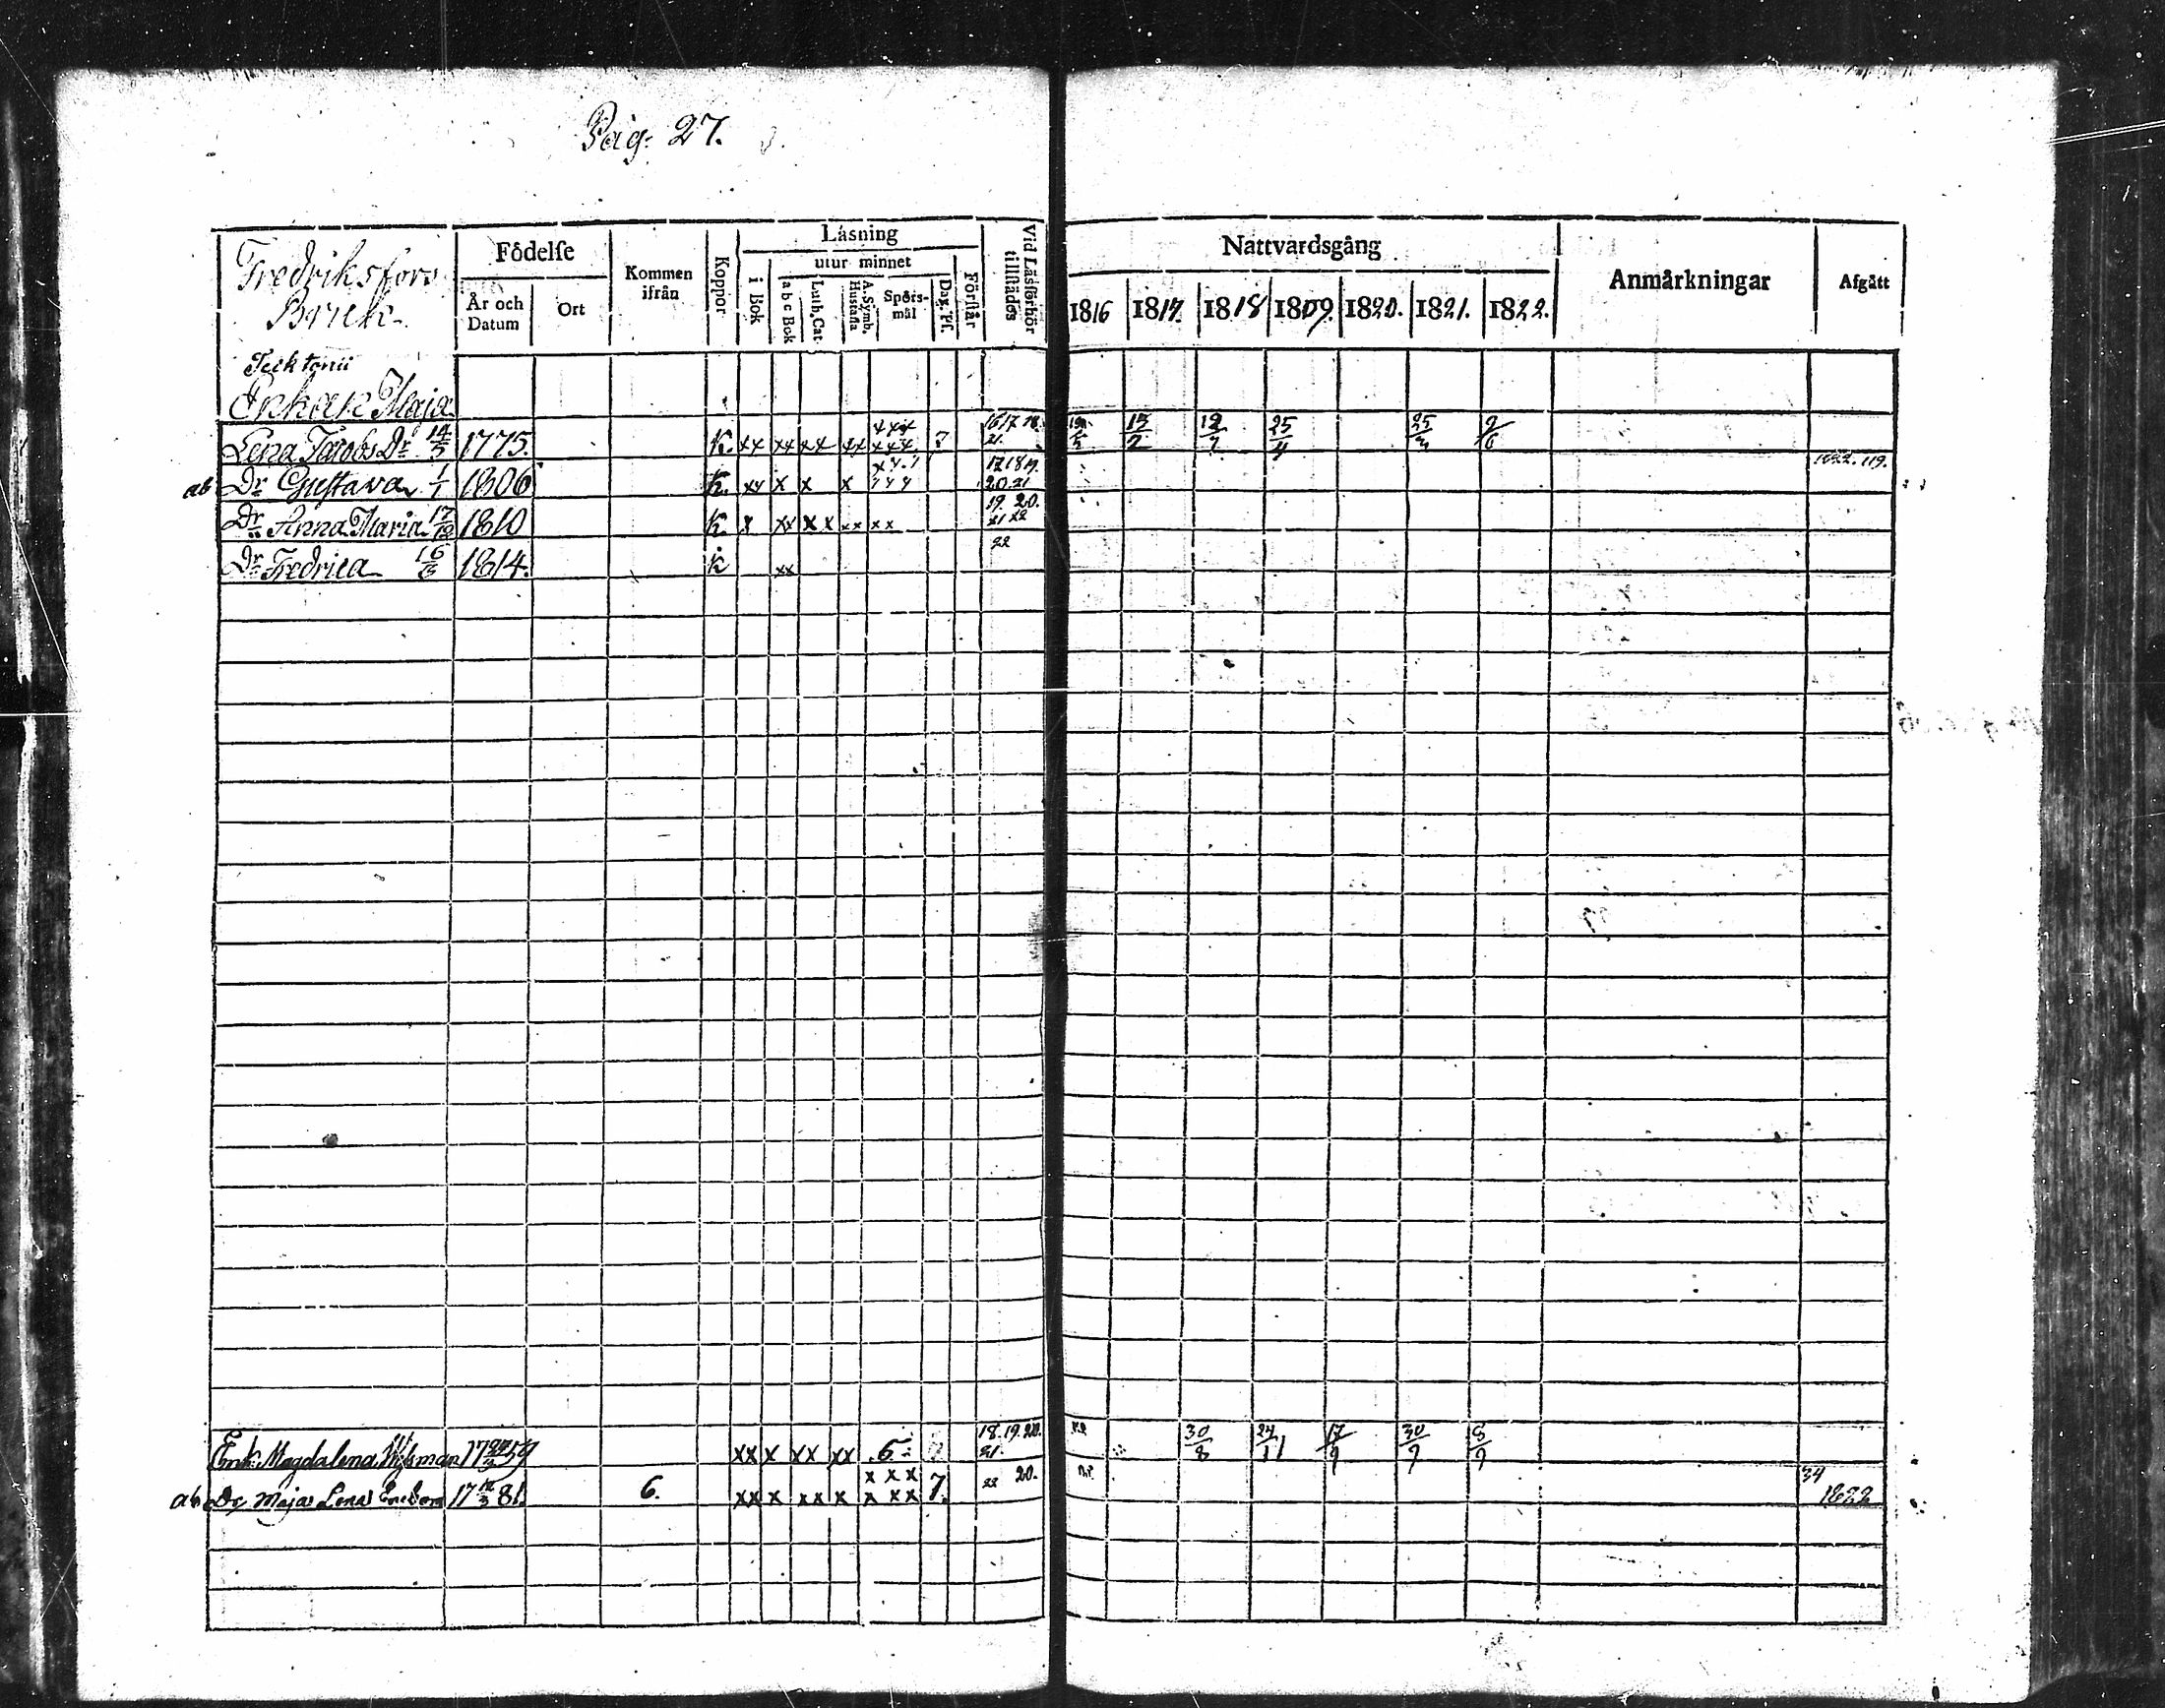 Pag. 27.
Fredriksfors
Bruk.
Födelse
År och Datum
Ort
Kommen ifrån
Koppor
Läsning
i Bok
utur minnet
a b c Bok
Luth. Cat.
A. Symb. Hustafla
Spörsmål
Dag. Ps.
Förstår
Vid Läsförhör tillstädes
Nattvardsgång
1816 1817. 1818 1809. 1820. 1821. 1822.
Anmärkningar
Afgått
Enkan Maja
Lena Jacobs Dr 14/5 1775. K. xx xx xx xx xxx xxx 7 16 17 18. 21. 15/7 12/7 25/4 25/3 9/6
ab Dr Gustava 1/1 1806 K. xx x x x 17 18 19. 20 21 1822. 119.
Dr Anna Maria 17/12 1810 K. x xx x x xx xx 19. 20. 21 22
Dr Fredrica 16/3 1814. k xx 22
Enk. Magdalena Wijsman 17 59 xx x xx xx 5 18. 19. 20. 21 30/8 24/11 17/9 30/9 8/9
ab Dr Maja Lena 17 81. 6. xx x xx x xxx xxx 7. 22 20. 34 1822